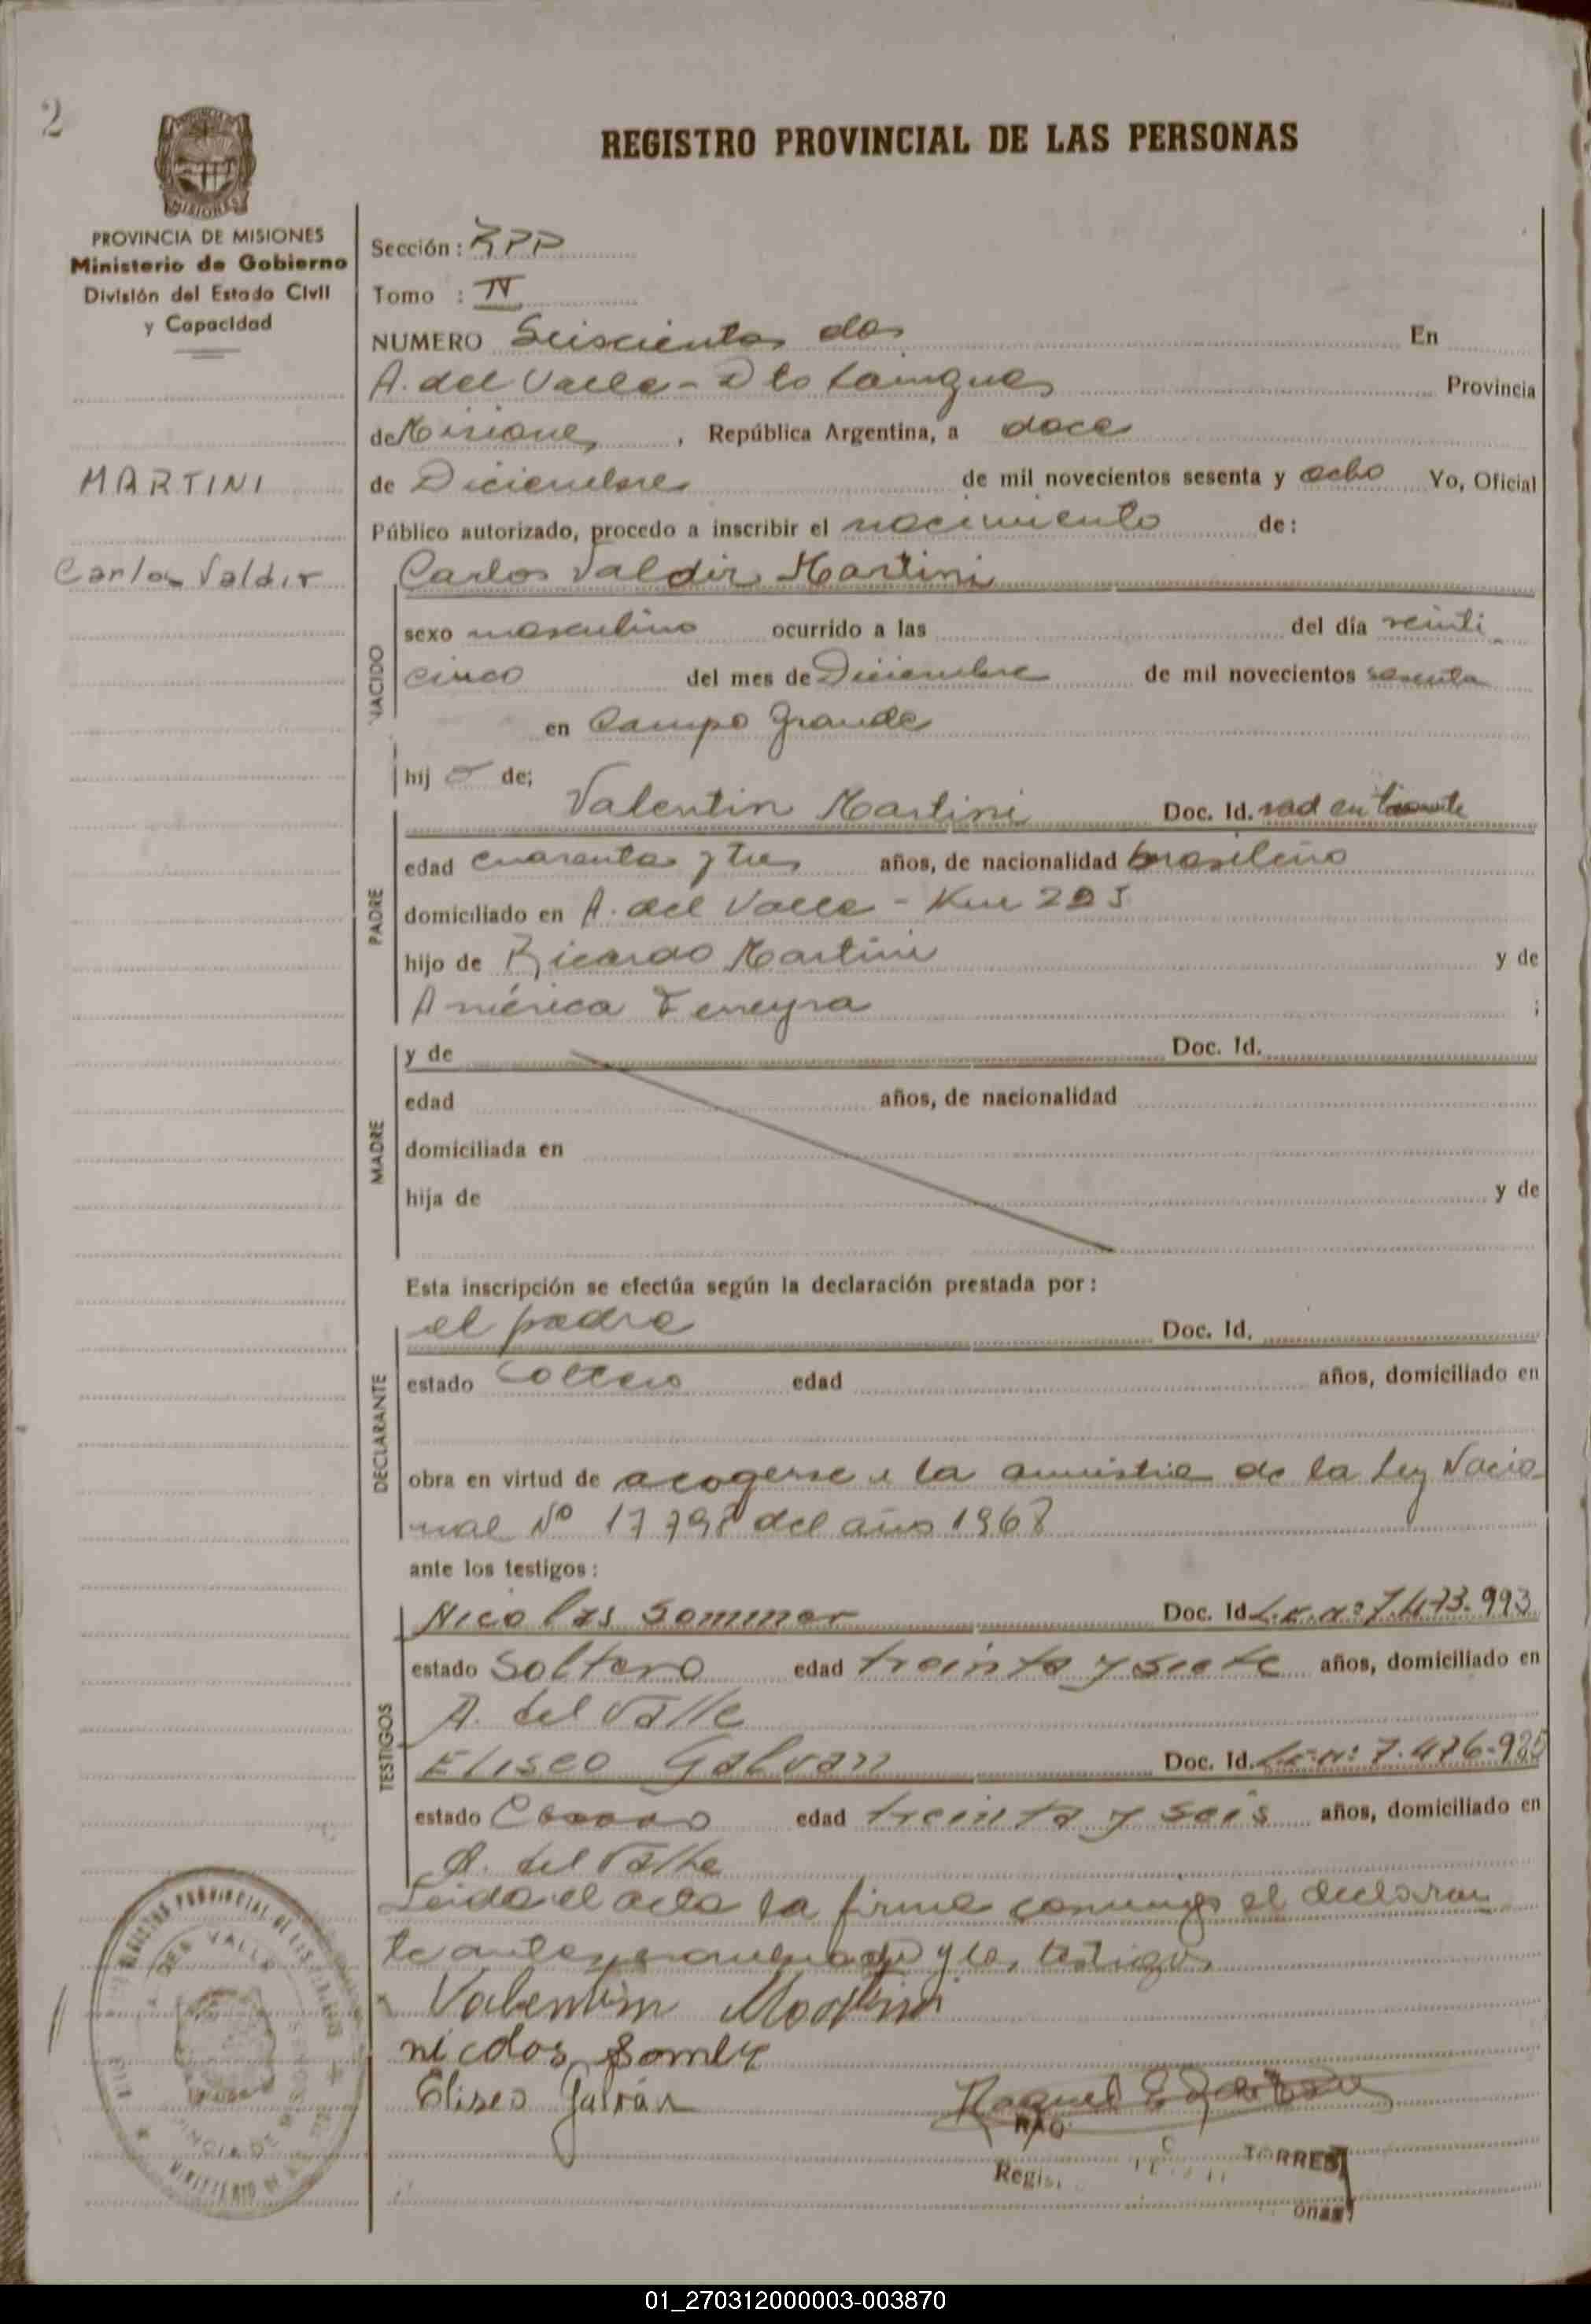 2
REGISTRO PROVINCIAL DE LAS PERSONAS
MISIONES
PROVINCIA DE MISIONES
Ministerio de Gobierno
División del Estado Civil
y Capacidad
MARTINI
Carlos Valdir
Sección: RPP
Tomo : IV
NUMERO Seiscientos dos En
A. del Valle - Dto Cainguas Provincia
de Misiones, República Argentina, a doce
de Diciembre de mil novecientos sesenta y ocho Yo, Oficial
Público autorizado, procedo a inscribir el nacimiento de:
Carlos Valdir Martini
NACIDO
sexo masculino ocurrido a las del día veinti
cinco del mes de Diciembre de mil novecientos sesenta
en Campo Grande
hijo de;
PADRE
Valentin Martini Doc. Id. rad en tramite
edad cuarenta y tres años, de nacionalidad brasileño
domiciliado en A. del Valle - Km
hijo de Ricardo Martini y de
América Ferreyra ;
MADRE
y de Doc. Id.
edad años, de nacionalidad
domiciliada en
hija de y de
Esta inscripción se efectúa según la declaración prestada por:
DECLARANTE
el padre Doc. Id.
estado soltero edad años, domiciliado en
obra en virtud de acogerse a la amnistia de la Ley Nacio
nal Nº 17798 del año 1968
ante los testigos:
TESTIGOS
Nicolas Sommer Doc. Id. L.E. nº 7.473.993
estado Soltero edad treinta y siete años, domiciliado en
A. del Valle
Eliseo Galvan Doc. Id. L.E. nº 7.476.985
estado Casado edad treinta y seis años, domiciliado en
A. del Valle
Leida el acta la firma conmigo el declaran
te antes mencionado y los testigos
Valentim Martini
nicolas Somer
Eliseo Galván
Raquel
TORRES
Regis.
onas
REGISTRO PROVINCIAL DE LAS PERSONAS
DEL VALLE
PROVINCIA DE MISIONES
MINISTERIO
01_270312000003-003870